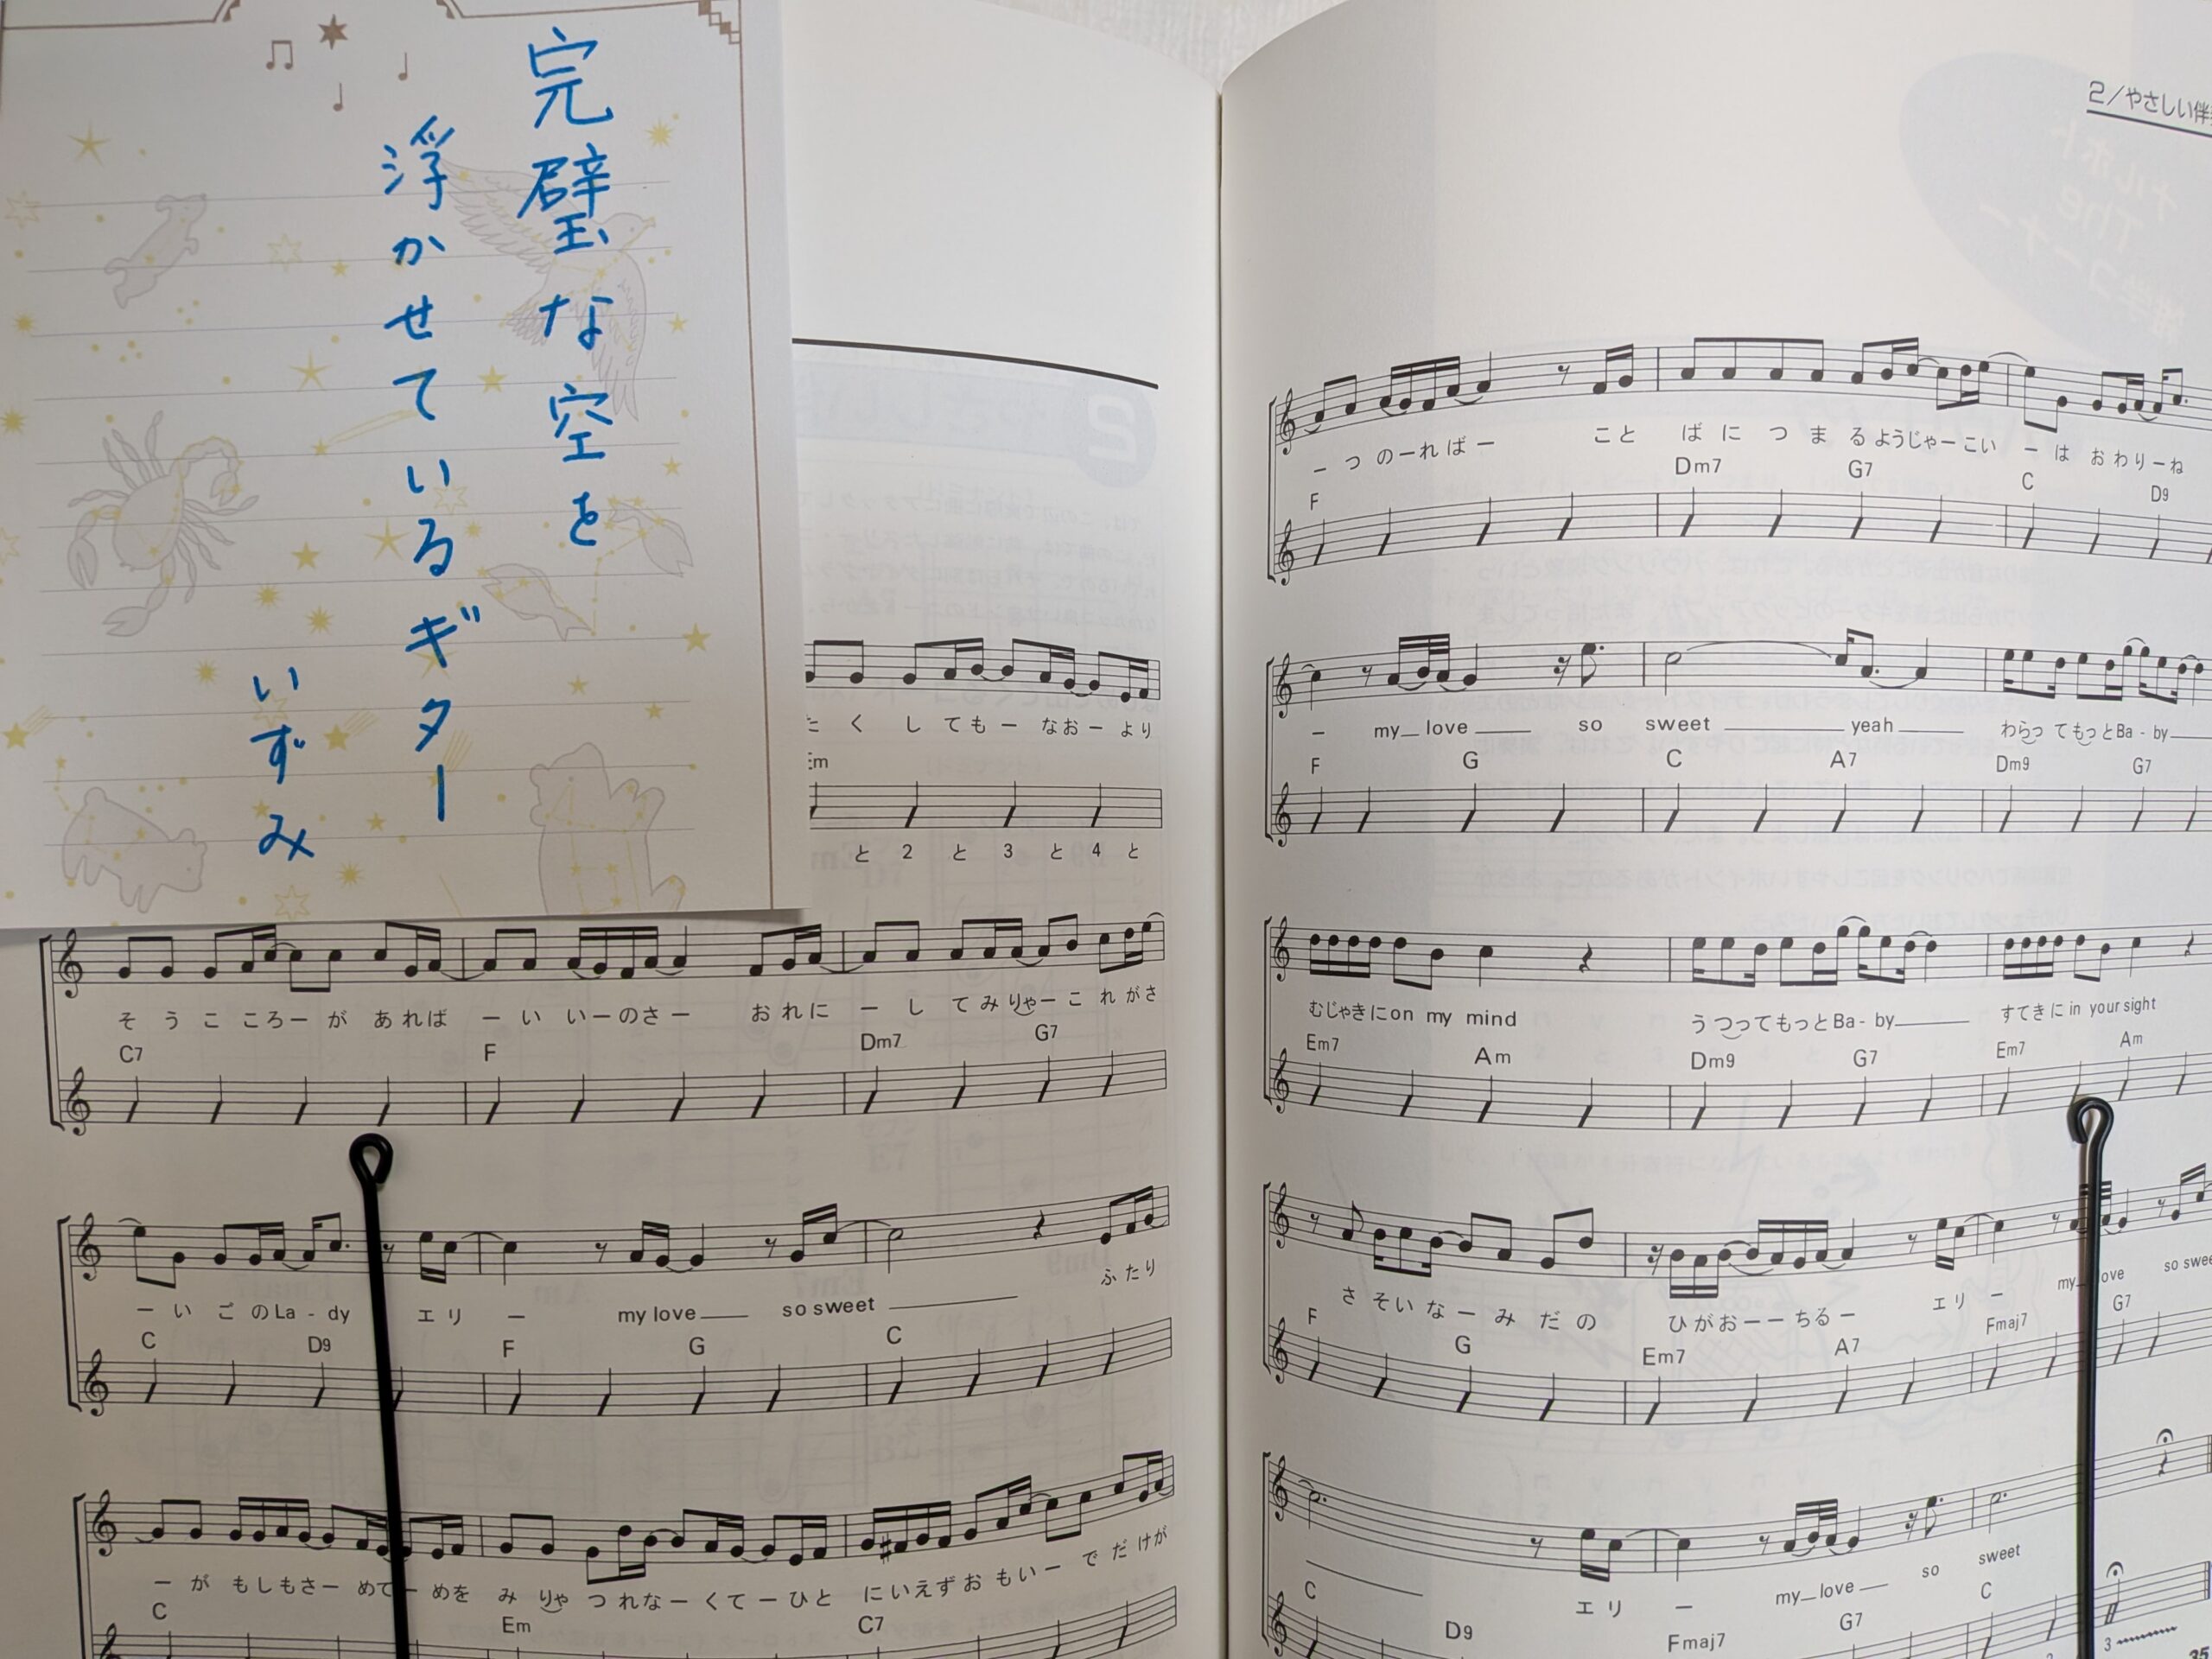 完璧な空を
浮かせているギター
いずみ
たくしてもーなおーより
Em
と 2 と 3 と 4 と
そうこころーが あれば ーいいーのさー おれに ーしてみりゃーこれがさ
C7 F Dm7 G7
ーいごのLa-dy エリ ー my love so sweet ふたり
C D9 F G C
ーがもしもさーめてーめを みりゃつれなーくてーひと にいえずおもいーでだけが
C Em C7
2/やさしい伴奏
ーつのーればー こと ばにつまるようじゃーこい ーはおわりーね
F Dm7 G7 C D9
ー my love so sweet yeah わらってもっとBa-by
F G C A7 Dm9 G7
むじゃきにon my mind うつってもっとBa-by すてきにin your sight
Em7 Am Dm9 G7 Em7 Am
さそいなーみだの ひがおーーちるー エリ ー my love so sweet
F G Em7 A7 Fmaj7 G7
エリ ー my love so sweet
C D9 Fmaj7 G7 C
3
35